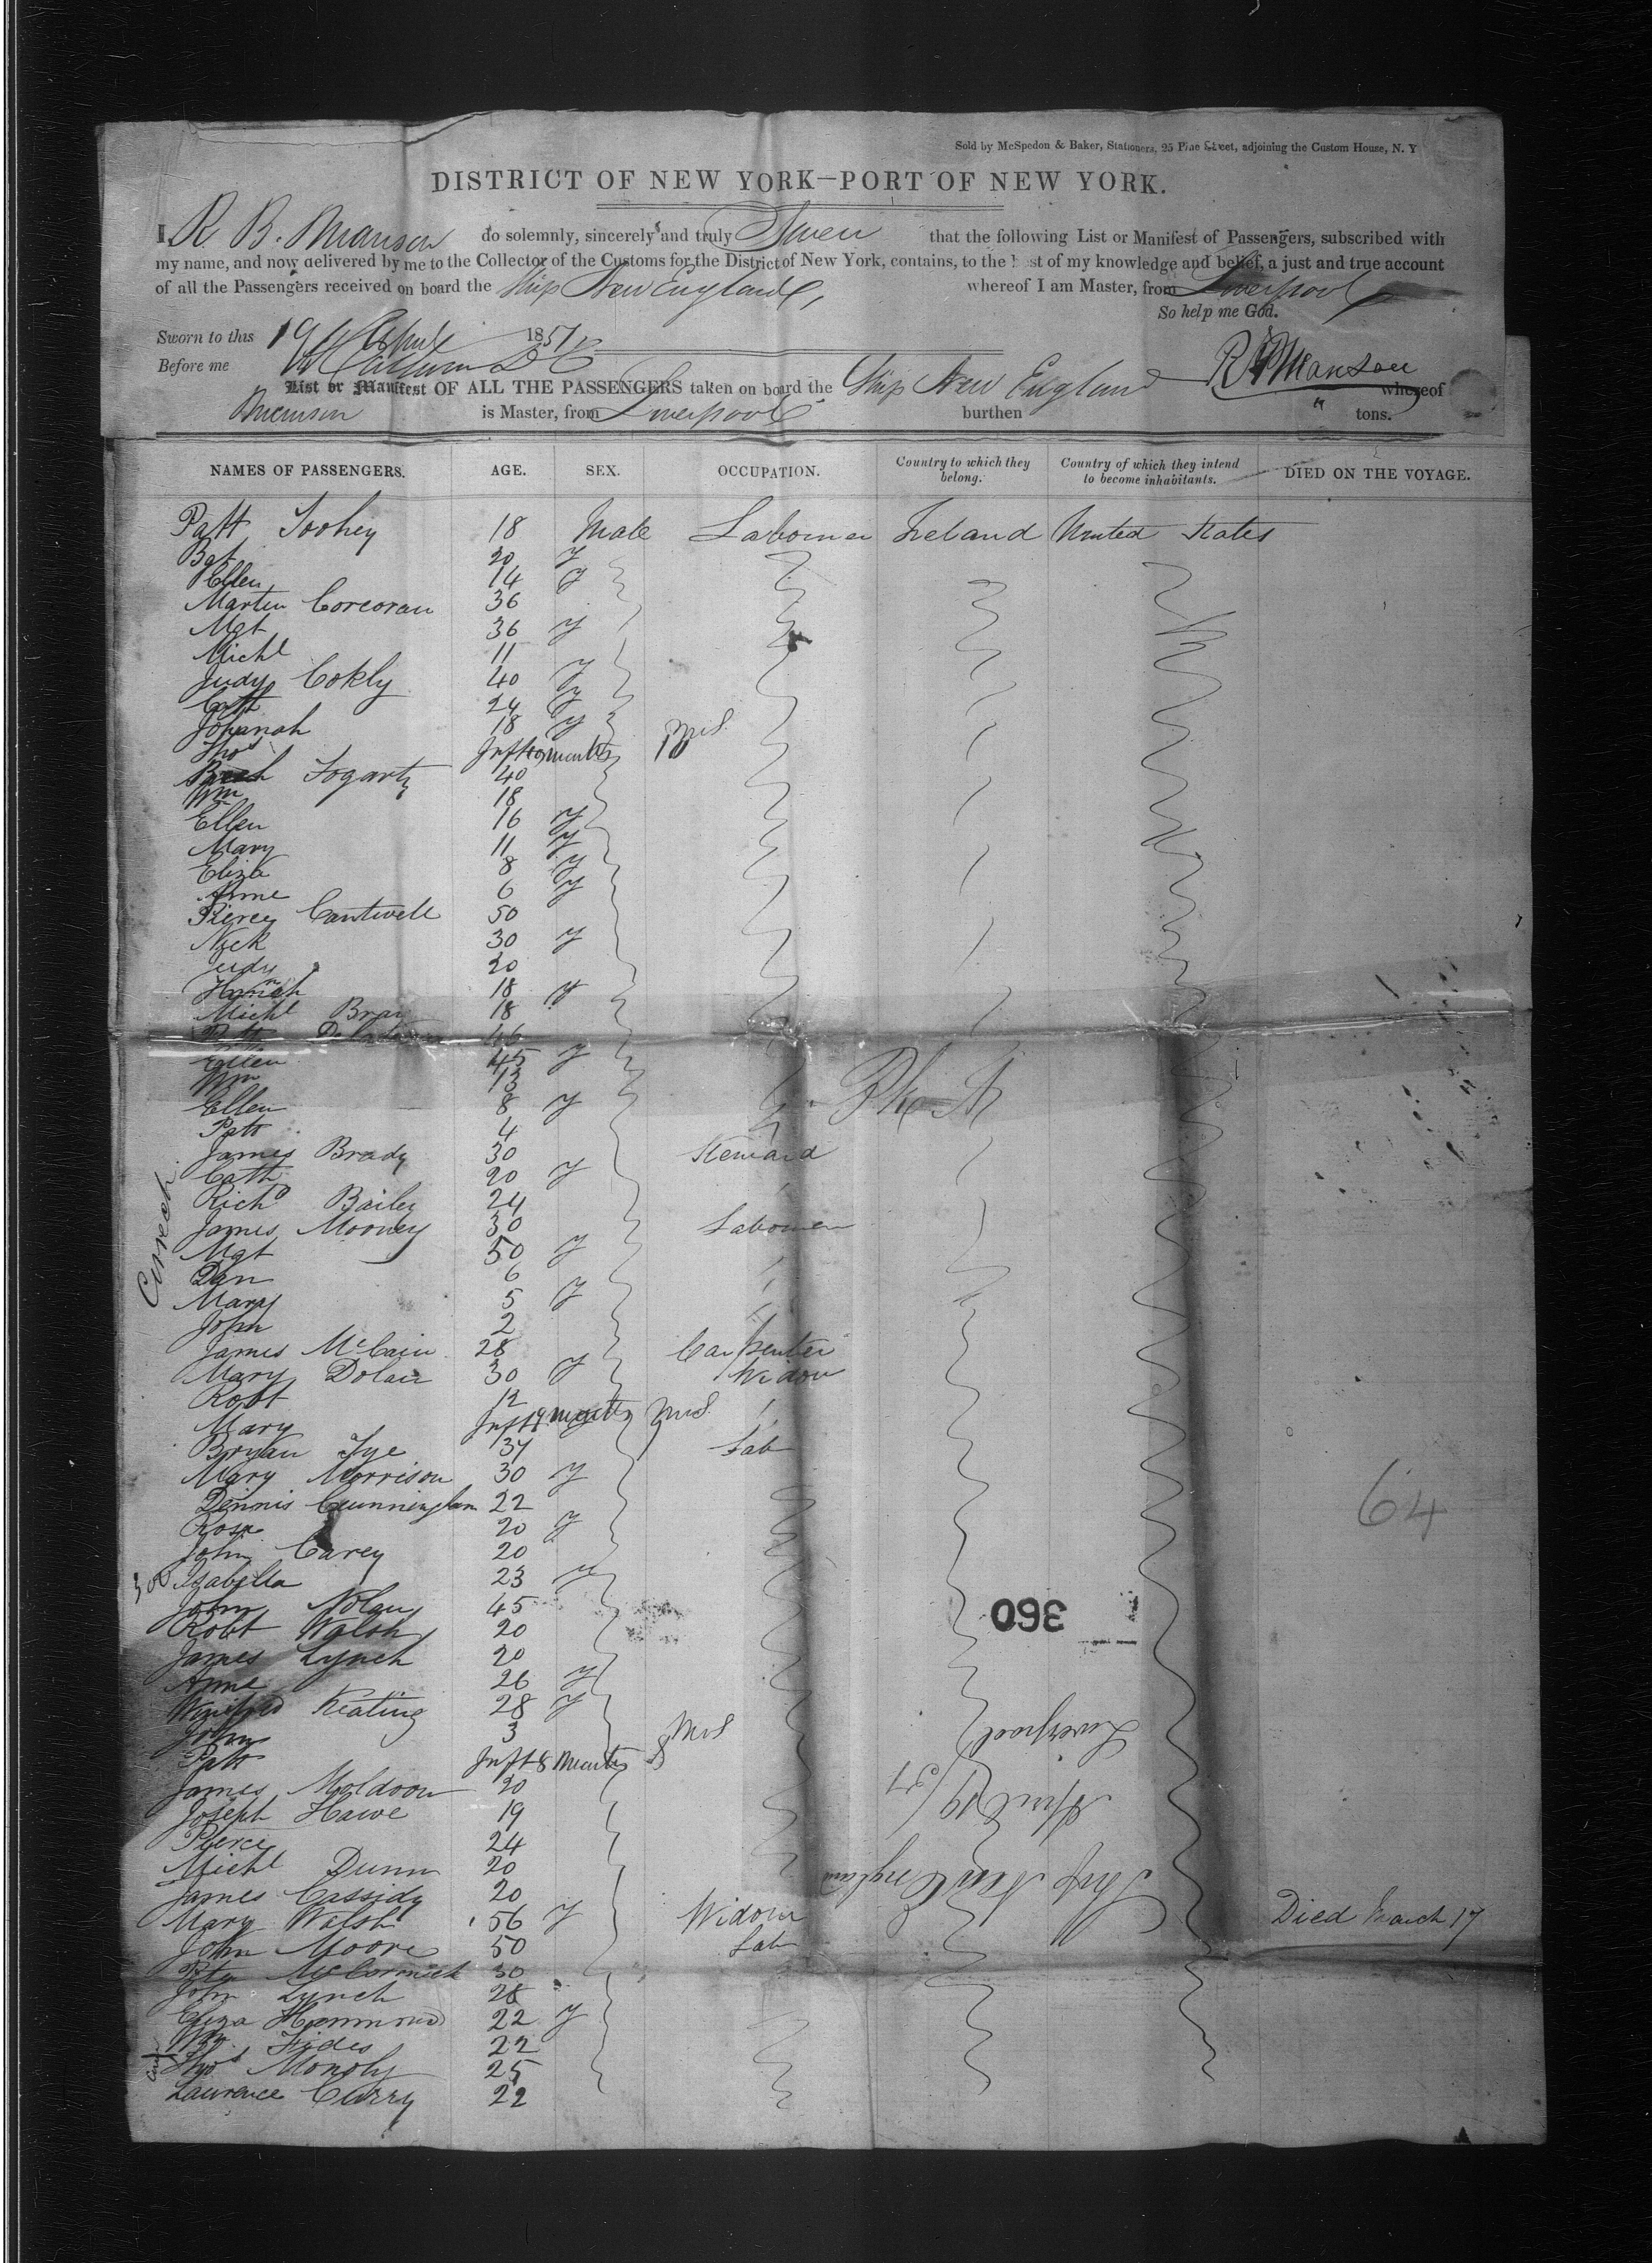 Sold by McSpedon & Baker, Stationers, 25 Pine Street, adjoining the Custom House, N. Y
DISTRICT OF NEW YORK—PORT OF NEW YORK.
I, R. B. Manson do solemnly, sincerely and truly Swear that the following List or Manifest of Passengers, subscribed with
my name, and now delivered by me to the Collector of the Customs for the District of New York, contains, to the best of my knowledge and belief, a just and true account
of all the Passengers received on board the Ship New England, whereof I am Master, from Liverpool
So help me God.
Sworn to this 19 April 1851
Before me
R B Manson
List or Manifest OF ALL THE PASSENGERS taken on board the Ship New England whereof
Manson is Master, from Liverpool burthen " tons.
NAMES OF PASSENGERS. AGE. SEX. OCCUPATION. Country to which they belong. Country of which they intend to become inhabitants. DIED ON THE VOYAGE.
Patt Toohey 18 Male Labourer Ireland United States
20 f
Ellen 14 f
Martin Corcoran 36
Mgt 36 f
Michl 11
Judy Cokly 40 f
Cath 24 f
Johanah 18 f
Thos Inft 10 months 10 Mos
Fogarty 40
Wm 18
Ellen 16 f
Mary 11 f
Eliza 8 f
Anne 6 f
Piercy Cantwell 50
Nick 30 f
Judy 20
18 f
Michl Bray 18
46
Ellen 45 f
Wm 13
Ellen 8 f
Patt 4
James Brady 30 Steward
Cath 20 f
Richd Bailey 24
James Mooney 30 Labourer
Mgt 50 f
Dan 6
Mary 5 f
John 2
James McCain 28 Carpenter
Mary Dolan 30 f Widow
Robt 12
Mary Inft 9 months 9 Mos
Bryan Tye 37 Lab
Mary Morrison 30 f
Dennis Cunningham 22
Rose 20 f
John Carey 20
Isabella 23 f
John Nolan 45
Robt Walsh 20
James Lynch 20
Anne 26 f
Winifred Keating 28 f
John 3
Patt Inft 8 Months 8 Mos
James Moldoon 20
Joseph Hawe 19
Pierce 24
Michl Dunn 20
James Cassidy 20
Mary Walsh 56 f Widow Died March 17
John Moore 50 Lab
Peter McCormick 30
John Lynch 28
Eliza Hammond 22 f
Wm Fides 22
Thos Monoly 25
Lawrence Curry 22
64
360
Ship New England
April 19/51
Liverpool